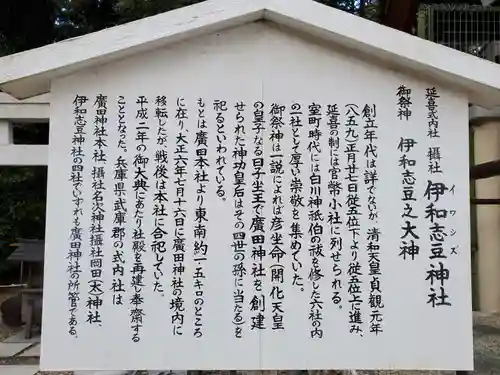 延喜式内社 攝社 伊和志豆神社
イワシズ
御祭神 伊和志豆之大神
創立年代は詳でないが、清和天皇貞観元年
(八五九)正月廿七日従五位下より従五位上に進み、
延喜の制には官幣小社に列せられる。
室町時代には白川神祇伯の祓を修した六社の内
の一社として厚い崇敬を集めていた。
御祭神は一説によれば彦坐命(開化天皇
の皇子なる日子坐王で廣田神社を創建
せられた神功皇后はその四世の孫に当たる)を
祀るといわれている。
もとは廣田本社より東南約一五キロのところ
に在り、大正六年七月十六日に廣田神社の境内に
移転したが、戦後は本社に合祀していた。
平成二年の御大典にあたり社殿を再建し奉齋する
こととなった。兵庫県武庫郡の式内社は
廣田神社本社、攝社名次神社攝社岡田(太)神社、
伊和志豆神社の四社でいずれも廣田神社の所管である。